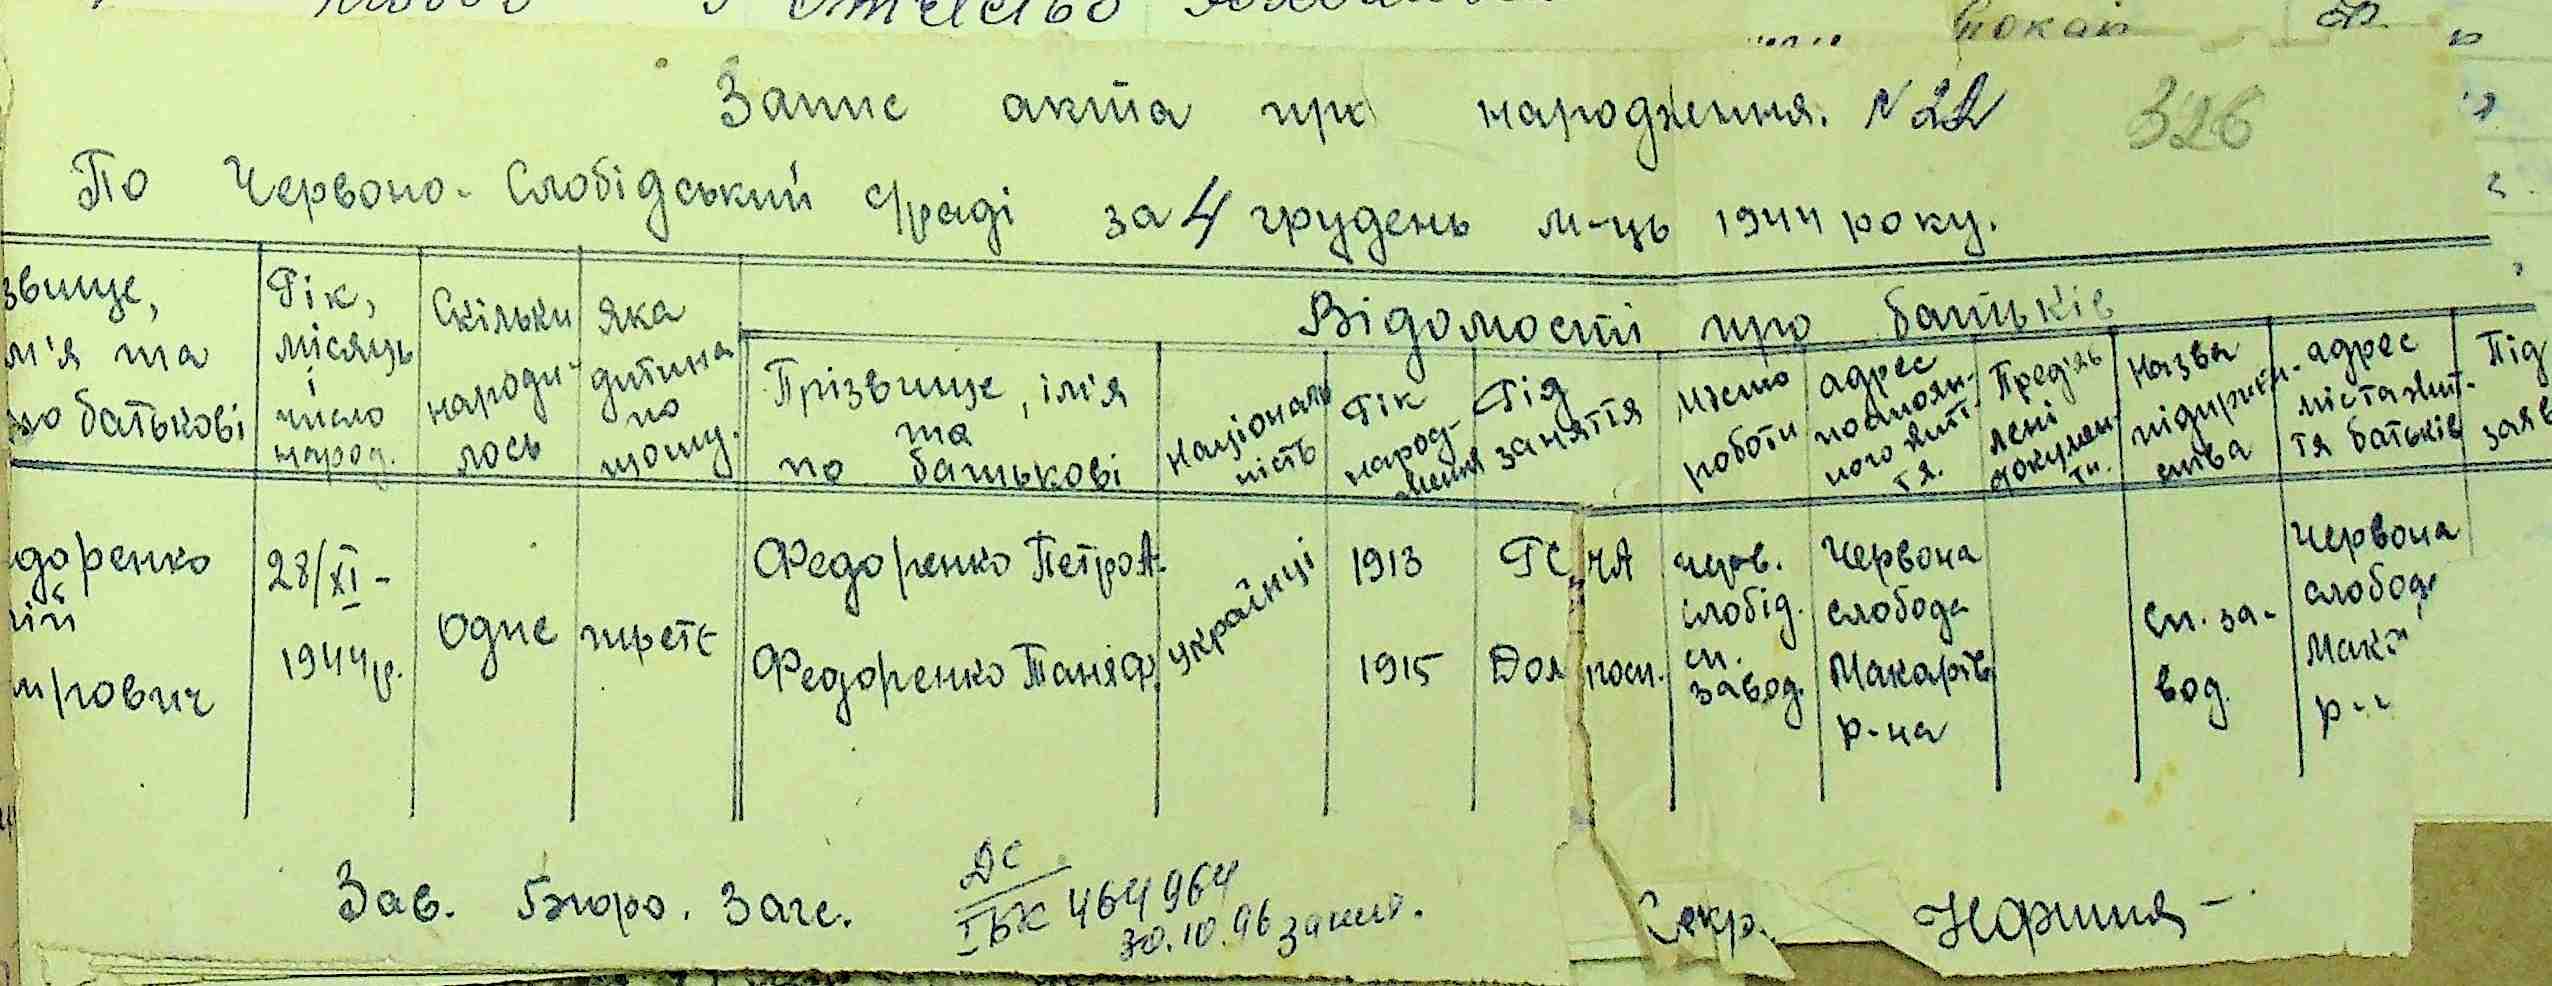 Отчество
Запис акта про народження. N 22
326
По Червоно-Слобідський с/раді за 4 грудень м-ць 1944 року.
звище,
м'я та
по батькові
Рік,
місяць
і
число
народ.
Скільки
народи-
лось
яка
дитина
по
щоту.
Відомості про батьків
Прізвище, ім'я
та
по батькові
Націона́ль
ність
Рік
народ-
ження
Рід
заняття
Місто
роботи
адрес
постоян-
ного жит-
тя.
Предяв
лені
докумен-
ти.
Назва
підприєм-
ства
адрес
міста жит-
тя батьків
Під
заяв
доренко
ій
трович
28/XI-
1944р.
Одне
третє
Федоренко Петро А.
Федоренко Таня Ф.
українці
1913
1915
РСЧА
Дом госп.
черв.
слобід.
сп.
завод.
Червона
слобода
Макарів
р-на
сп. за-
вод.
Червона
слобода
Мака
р-н
Зав. Бюро. Загс.
ДС
ІБК 464964
30.10.96
Секр.